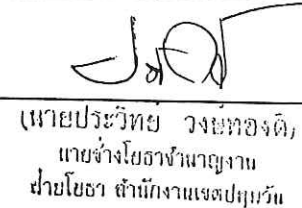 (นายประวิทย์ วงษ์ทองดี)
นายช่างโยธาชำนาญงาน
ฝ่ายโยธา สำนักงานเขตปทุมวัน